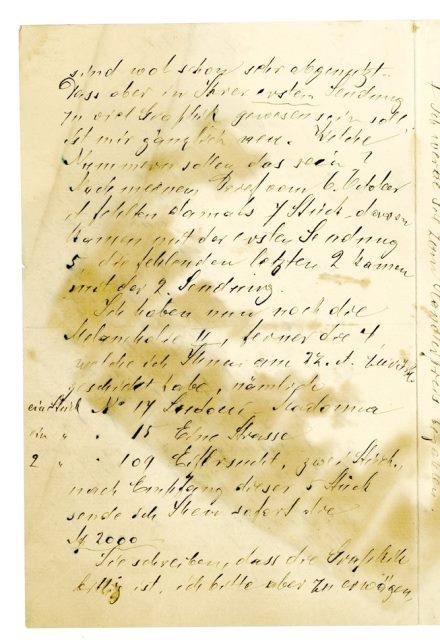 sind wol schon sehr abgenutzt.
Dass aber in Ihrer ersten Sendung
zu viel Graphik gewesen sein soll
ist mir gänzlich neu. Welche
Nummern sollen das sein?
Nach meinem Brief vom 6. October
fehlten damals 7 Stück, davon
kamen mit der ersten Sendung
5, die fehlenden letzten 2 kamen
mit der 2. Sendung.
Sie haben nun noch die
Melancholie II, ferner die 4
welche ich Ihnen am 22. d. zurück
geschickt habe, nämlich
ein Stück No 17 Madonna
ein " " 15 Eine Strasse
2 " " 109 Eifersucht, zwei Stück,
nach Empfang dieser 5 Stück
sende ich Ihnen sofort die
M 2000
Sie schreiben, dass die Graphik
billig ist, ich bitte aber zu erwägen,